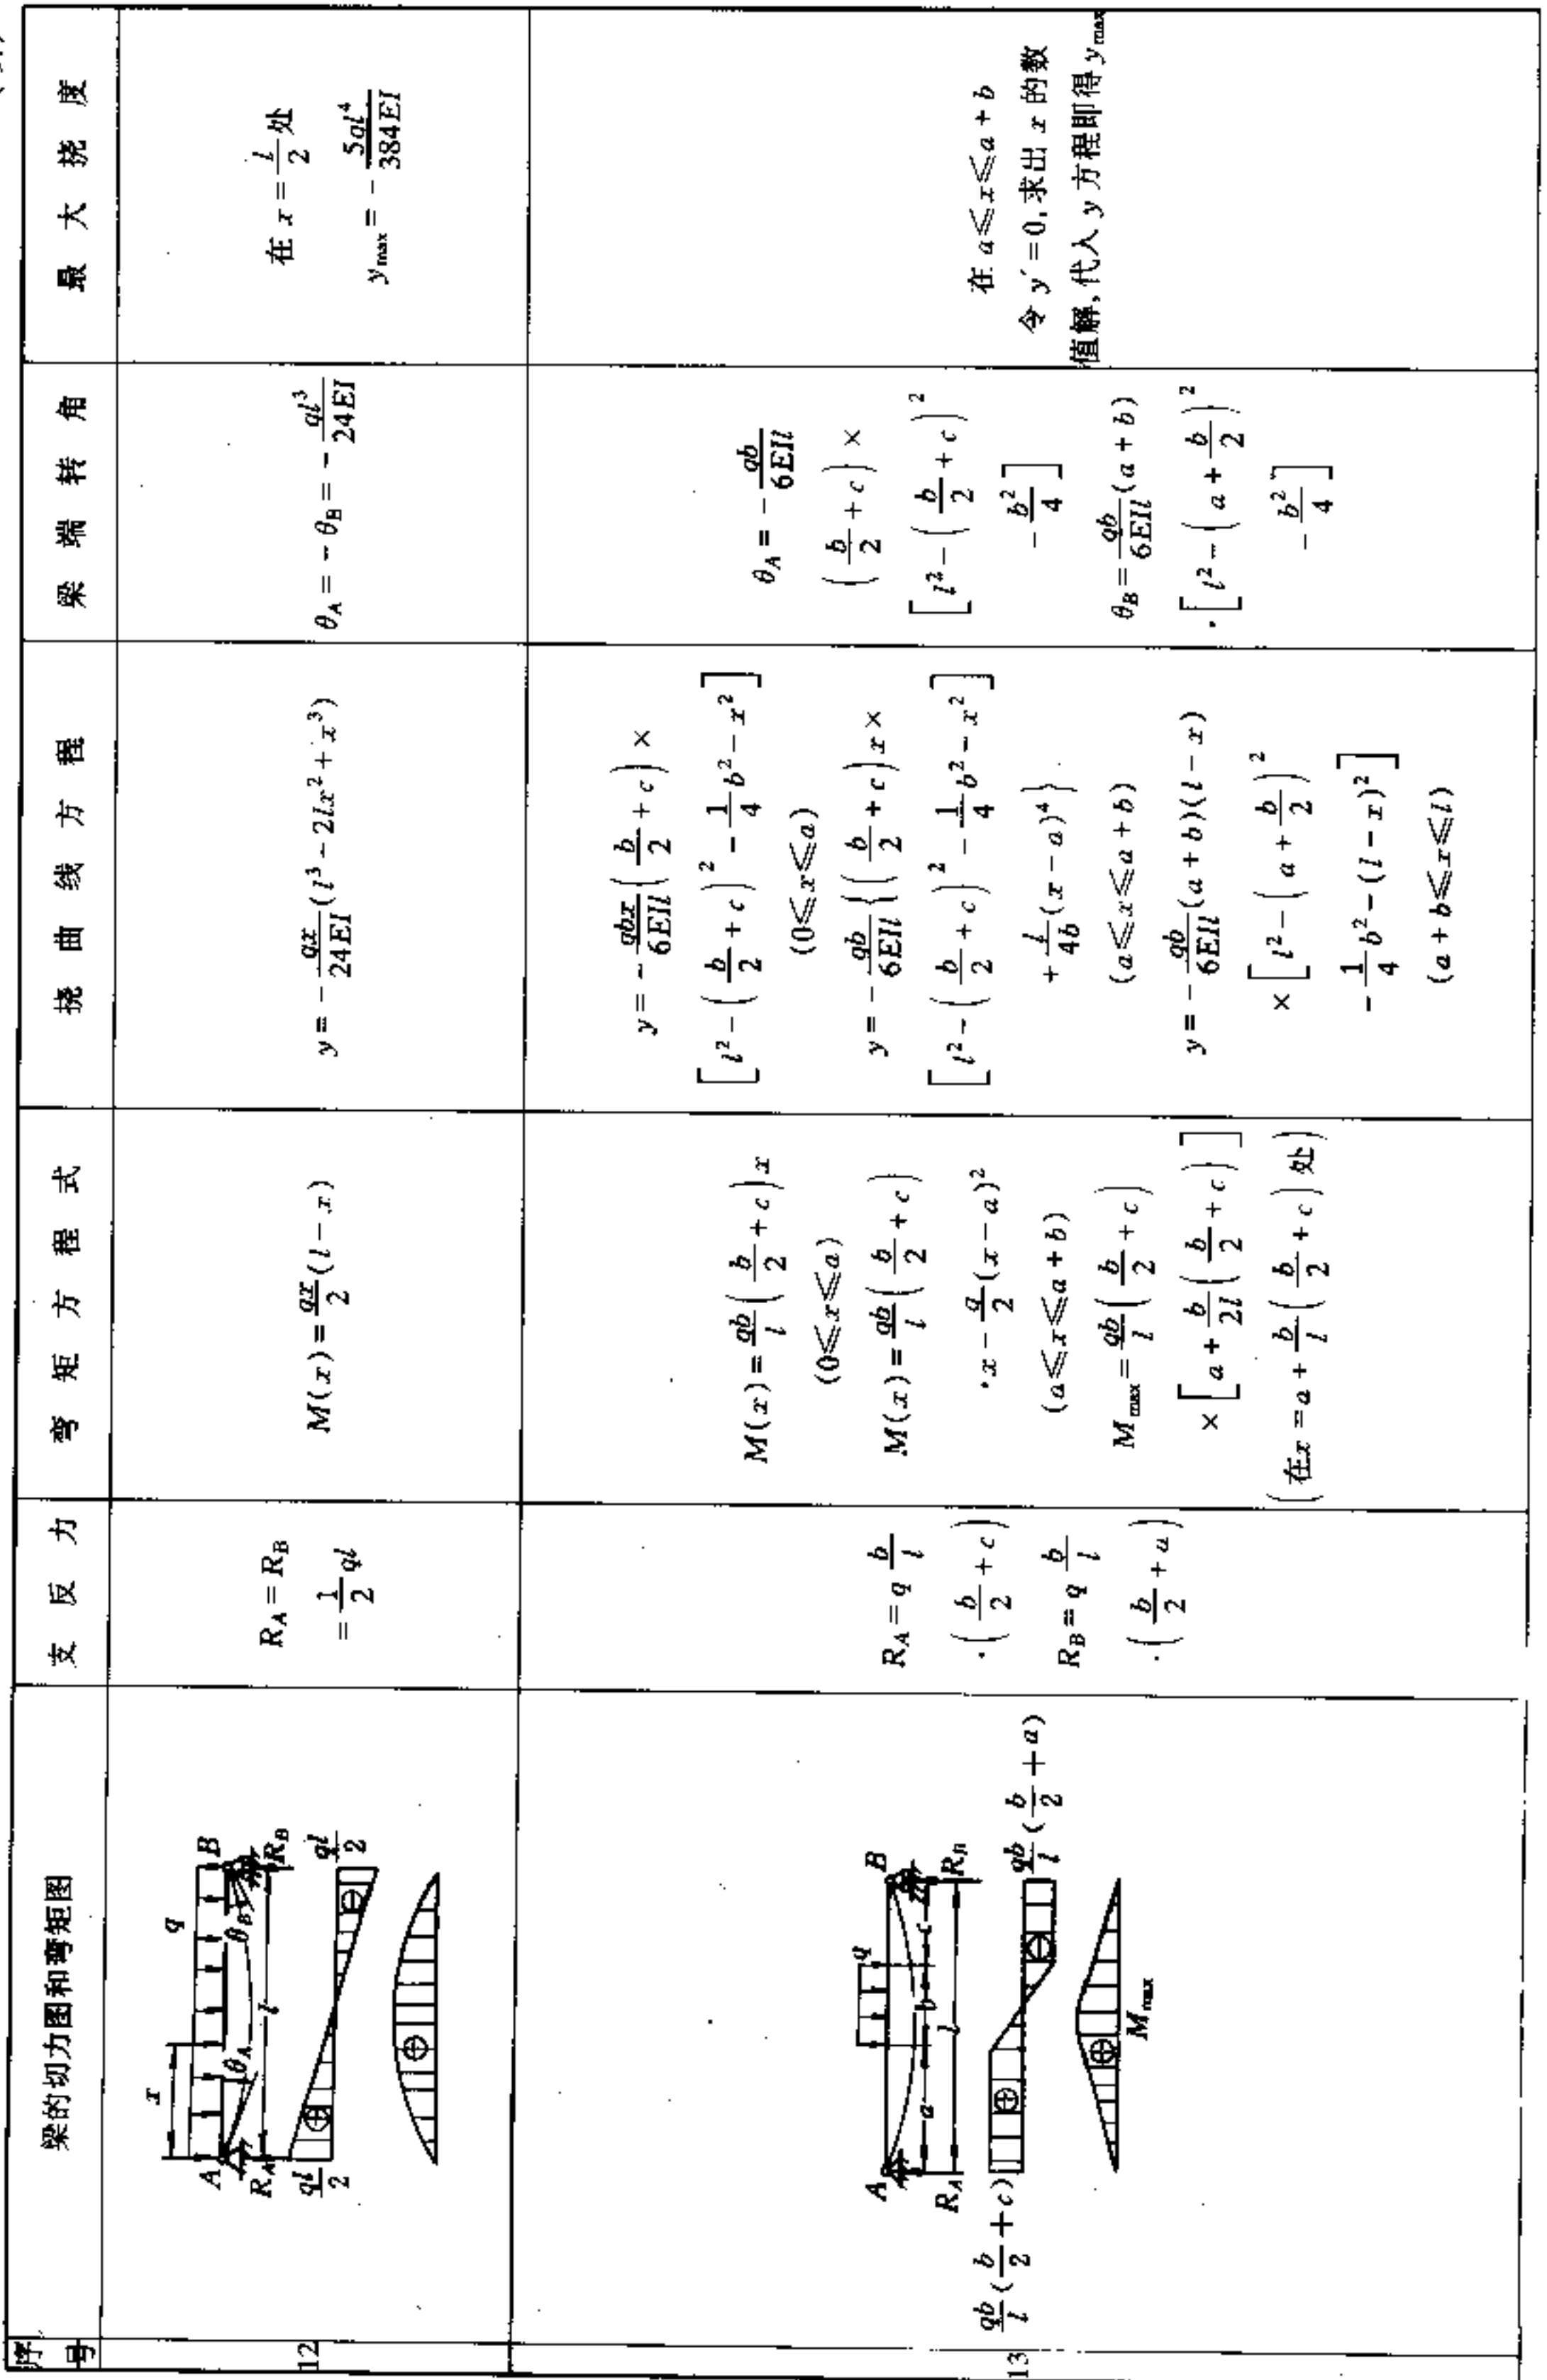 序号
梁的切力图和弯矩图
支反力
弯矩方程式
挠曲线方程
梁端转角
最大挠度
12
x
q
A
B
θ_A
θ_B
l
R_A
R_B
\frac{ql}{2}
\frac{ql}{2}
⊕
⊖
⊕
R_A = R_B
= \frac{1}{2}ql
M(x) = \frac{qx}{2}(l - x)
y = -\frac{qx}{24EI}(l^3 - 2lx^2 + x^3)
θ_A = -θ_B = -\frac{ql^3}{24EI}
在 x = \frac{l}{2} 处
y_{max} = -\frac{5ql^4}{384EI}
13
q
A
B
a
b
c
l
R_A
R_B
\frac{qb}{l}(\frac{b}{2} + c)
\frac{qb}{l}(\frac{b}{2} + a)
⊕
⊕
M_{max}
R_A = q\frac{b}{l}
·(\frac{b}{2} + c)
R_B = q\frac{b}{l}
·(\frac{b}{2} + a)
M(x) = \frac{qb}{l}(\frac{b}{2} + c)x
(0⩽x⩽a)
M(x) = \frac{qb}{l}(\frac{b}{2} + c)
·x - \frac{q}{2}(x - a)^2
(a⩽x⩽a + b)
M_{max} = \frac{qb}{l}(\frac{b}{2} + c)
×[a + \frac{b}{2l}(\frac{b}{2} + c)]
(在x = a + \frac{b}{l}(\frac{b}{2} + c)处)
y = -\frac{qbx}{6EIl}(\frac{b}{2} + c)×
[l^2 - (\frac{b}{2} + c)^2 - \frac{1}{4}b^2 - x^2]
(0⩽x⩽a)
y = -\frac{qb}{6EIl}{(\frac{b}{2} + c)x×
[l^2 - (\frac{b}{2} + c)^2 - \frac{1}{4}b^2 - x^2]
+ \frac{l}{4b}(x - a)^4}
(a⩽x⩽a + b)
y = -\frac{qb}{6EIl}(a + b)(l - x)
×[l^2 - (a + \frac{b}{2})^2
- \frac{1}{4}b^2 - (l - x)^2]
(a + b⩽x⩽l)
θ_A = -\frac{qb}{6EIl}
(\frac{b}{2} + c)×
[l^2 - (\frac{b}{2} + c)^2
- \frac{b^2}{4}]
θ_B = \frac{qb}{6EIl}(a + b)
·[l^2 - (a + \frac{b}{2})^2
- \frac{b^2}{4}]
在 a⩽x⩽a + b
令 y′ = 0,求出 x 的数
值解,代入 y 方程即得 y_{max}